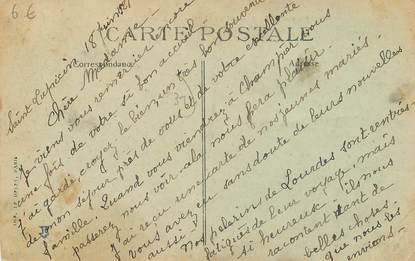 6 €
CARTE POSTALE
Correspondance
Adresse
Saint Lupicin 18 juin
Chère Madame
Je viens vous remercier encore
une fois de votre si bon accueil
J'ai gardé croyez le bien, un très bon souvenir
de mon séjour près de vous et de votre excellente
famille. Quand vous viendrez à Champier vous
passerez nous voir cela nous fera plaisir.
J'ai reçu une carte de nos jeunes mariés.
vous avez eu sans doute de leurs nouvelles
aussi!
Nos pèlerins de Lourdes sont rentrés
fatigués de leur voyage mais
si heureux ils nous
racontent tant de
belles choses.
que nous les
envions